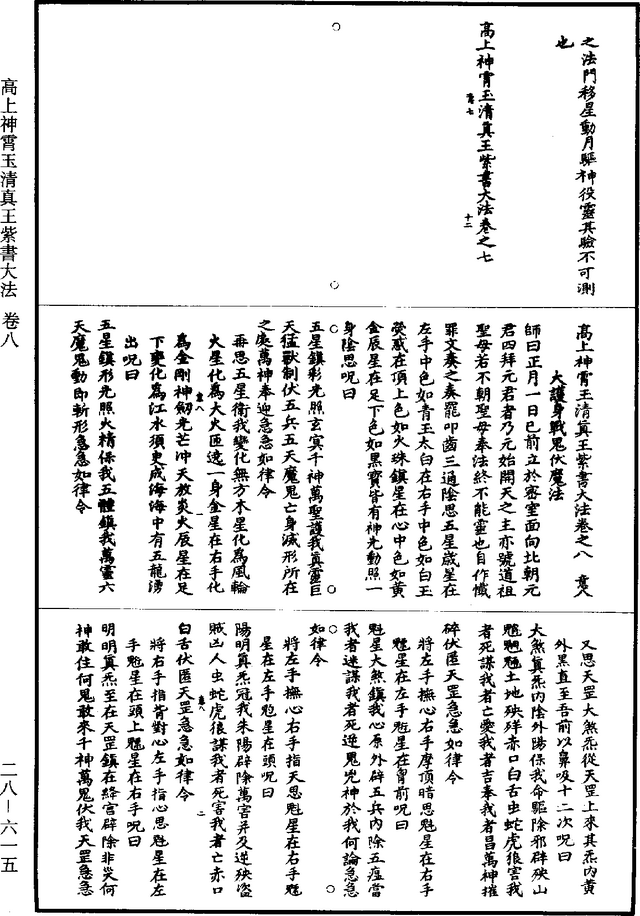 高上神霄玉清真王紫書大法 卷八
二八—六一五
之法門移星動月驅神役靈其驗不可測
也
高上神霄玉清真王紫書大法卷之七
意七
十二
高上神霄玉清真王紫書大法卷之八 意八
大護身戰鬼伏魔法
師曰正月一日已前立於密室面向北朝元
君四拜元君者乃元始開天之主亦號道祖
聖母若不朝聖母奉法終不能靈也自作懺
罪文奏之奏罷叩齒三通陰思五星歲星在
左手中色如青玉太白在右手中色如白玉
熒惑在頂上色如火珠鎮星在心中色如黃
金辰星在足下色如黑寶皆有神光動照一
身陰思呪曰
五星鎮彩光照玄冥千神萬聖護我真靈巨
天猛獸制伏五兵五天魔鬼亡身滅形所在
之處萬神奉迎急急如律令
再思五星衛我變化無方木星化為風輪
火星化為大火匝遶一身金星在右手化
意八
一
為金剛神劒光芒冲天放炎火辰星在足
下變化為江水須更成海海中有五龍湧
出呪曰
五星鎮形光照火精保我五體鎮我萬靈六
天魔鬼動即斬形急急如律令
又思天罡大煞炁從天罡上來其炁內黃
外黑直至吾前以鼻吸十二次呪曰
大煞真炁內陰外陽保我命驅除邪辟殃山
魈魍魎土地殃殍赤口白舌虫蛇虎狼害我
者死謀我者亡愛我者吉奉我者昌萬神摧
碎伏匿天罡急急如律令
將左手撫心右手摩頂暗思魁星在右手
魓星在左手魒星在胷前呪曰
魁星大煞鎮我心原外辟五兵內除五瘟當
我者迷謀我者死逆鬼兇神於我何論急急
如律令
將左手撫心右手指天思魁星在右手魓
星在左手魒星在頭呪曰
陽明真炁冠我朱陽辟除萬害并及逆殃盜
賊凶人虫蛇虎狼謀我者死害我者亡赤口
意八
二
白舌伏匿天罡急急如律令
將右手指背對心左手指心思魁星在左
手魒星在頭上魓星在右手呪曰
明明真炁至在天罡鎮在絳宮辟除非災何
神敢住何鬼敢來千神萬鬼伏我天罡急急